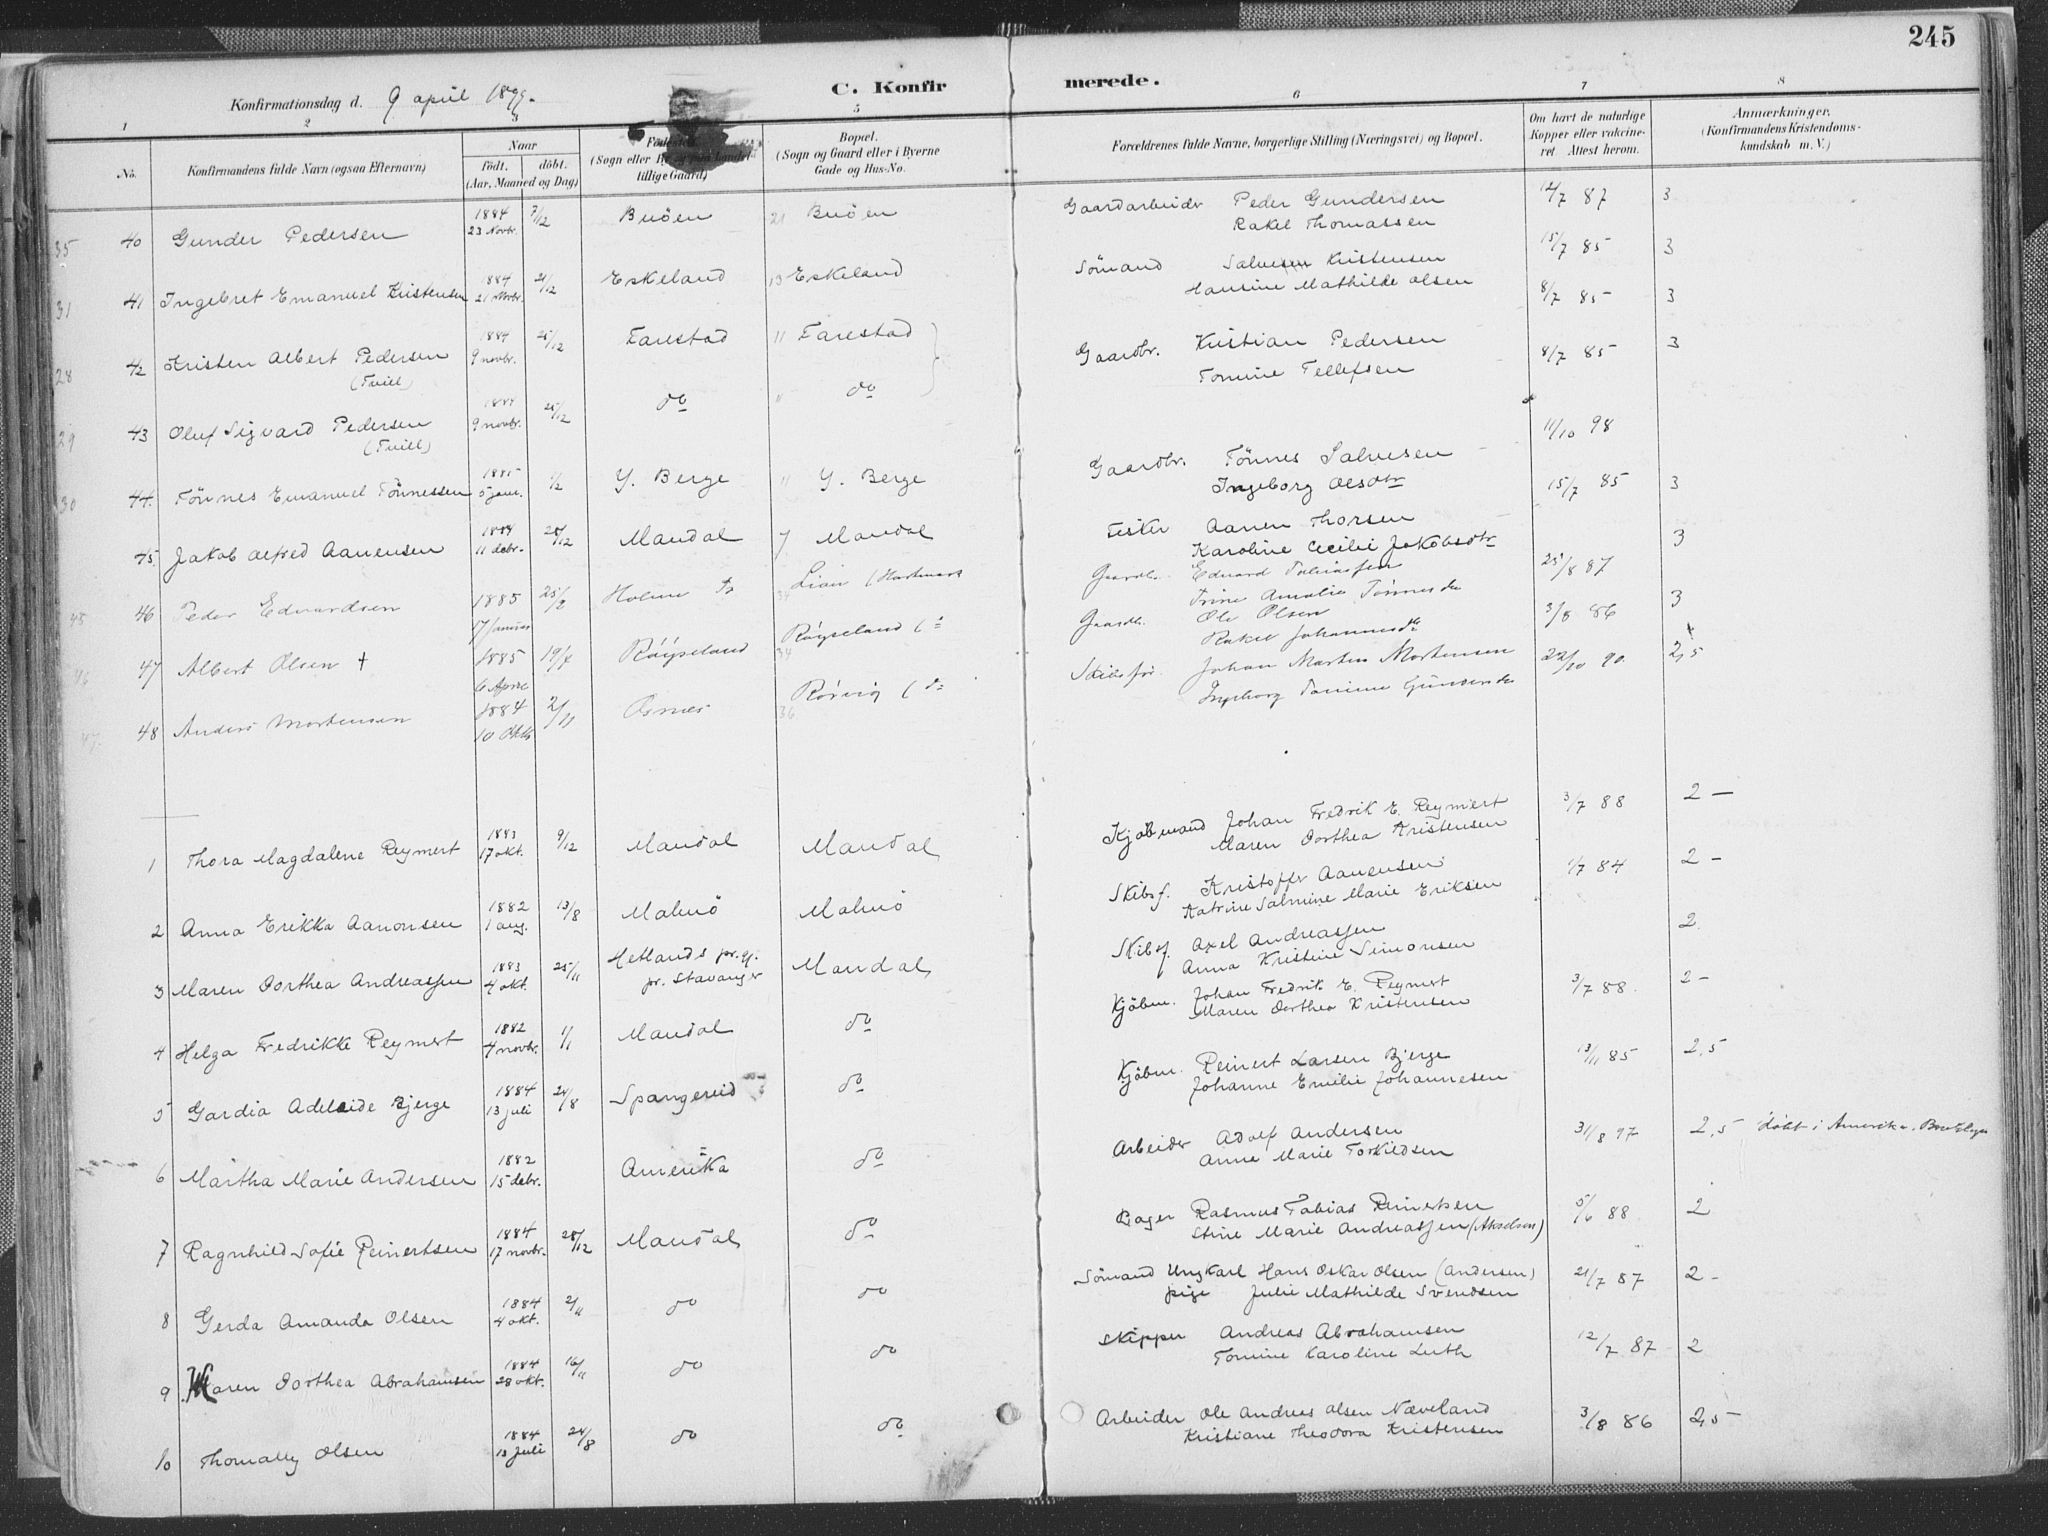 245
Konfirmationsdag d. 9 april 1899.
C. Konfirmerede.
1 2 3 5 6 7 8
No.
Konfirmandens fulde Navn (ogsaa Efternavn)
Naar
födt. döbt.
(Aar, Maaned og Dag)
Födested.
(Sogn eller By og paa Landet tillige Gaard)
Bopæl.
(Sogn og Gaard eller i Byerne Gade og Hus-No.
Forældrenes fulde Navne, borgerlige Stilling (Næringsvei) og Bopæl.
Om havt de naturlige Kopper eller vaccineret Attest herom.
Anmærkninger.
(Konfirmandens Kristendomskundskab m. V.)
35 40 Gunder Pedersen 1884 23 Novbr. 7/12 Buöen 21 Buöen Gaardarbeider Peder Gundersen 12/7 87 3
Rakel Thomassen
31 41 Ingebret Emanuel Kristensen 1884 21 Novbr. 21/12 Eskeland 13 Eskeland Sömand Salvesen Kristensen 15/7 85 3
Hansine Mathilde Olsen
28 42 Kristen Albert Pedersen 1884 9 novbr. 25/12 Farestad 11 Farestad Gaardbr. Kristian Pedersen 8/7 85 3
(Tvill) Tomine Tellefsen
29 43 Oluf Sigvard Pedersen 1884 9 novbr. 25/12 do " do 8/7 85 3
(Tvill)
30 44. Tönnes Emanuel Tönnessen 1885 5 janr. 1/2 Y. Berge 11 Y. Berge Gaardbr. Tönnes Salvesen 11/10 98
Ingeborg Olsdtr
45. Jakob Alfred Aanensen 1884 11 debr. 28/12 Mandal 7 Mandal Fisker Aanen Thorsen 15/7 85 3
Karoline Cecilie Jakobsdtr
45 46 Peder Edvardsen 1885 17 Januar 25/2 Holme Lian (Hartmark Gaardb. Edvard Tobiassen 25/8 87 3
Trine Amalie
46 47 Albert Olsen + 1885 6 April 19/4 Röyseland 34 Röyseland Gaardb. Ole Olsen 3/8 86 3
Rakel Johannesdtr
47. 48 Anders Mortensen 1884 10 Oktb 2/11 Osnes 36 Rörvig Skibsför. Johan Martin Mortensen 22/10 90. 2,5
Ingeborg Tomine
1 Thora Magdalene Reymert 1883 17 okt. 9/12 Mandal Mandal Kjöbmand Johan Fredrik E. Reymert 3/7 88 2 –
Maren Dorthea Kristensen
2 Anna Erikka Aanonsen 1882 1 aug. 13/8 Malmö Malmö Skibsf. Kristoffer Aanensen 1/7 84 2 –
Katrine Salmine Marie Eriksen
3 Maren Dorthea Andreassen 1883 4 okt. 25/11 Hetlands pr.gj. pr. Stavanger Mandal Skibsf. Axel Andreassen 2
Anna Kristine Simonsen
4 Helga Fredrikke Reymert 1882 4 novbr. 1/1 Mandal do Kjöbm. Johan Fredrik E. Reymert 3/7 88. 2 –
Maren Dorthea Kristensen
5 Gardia Adelaide Bjerge 1884 13 juli 24/8 Spangereid do Kjöbm. Reinert Larsen Bjerge 13/11 85 2,5
Johanne Emilie Johannesen
6 Martha Marie Andersen 1882 15 debr. Amerika do Arbeider Adolf Andersen 31/8 97 2,5 döbt i Amerika.
Anne Marie Torkildsen
7 Ragnhild Sofie Reinertsen 1884 17 novbr. 28/12 Mandal do Bager Rasmus Tobias Reinertsen 5/6 88 2
Stine Marie Andreassen (Akselsen)
8 Gerda Amanda Olsen 1884 4 okt. 2/11 do do Sömand Ungkarl Hans Oskar Olsen (Andersen) 21/7 87 2 –
pige Julie Mathilde Svendsen
9 Maren Dorthea Abrahamsen 1884 28 okt. 16/11 do do Skipper Andreas Abrahamsen 12/7 87 2
Tomine Caroline Luth
10 Thomally Olsen 1884 13 Juli 24/8 do do Arbeider Ole Andreas Olsen Næveland 3/8 86 2,5
Kristiane Theodora Kristensen